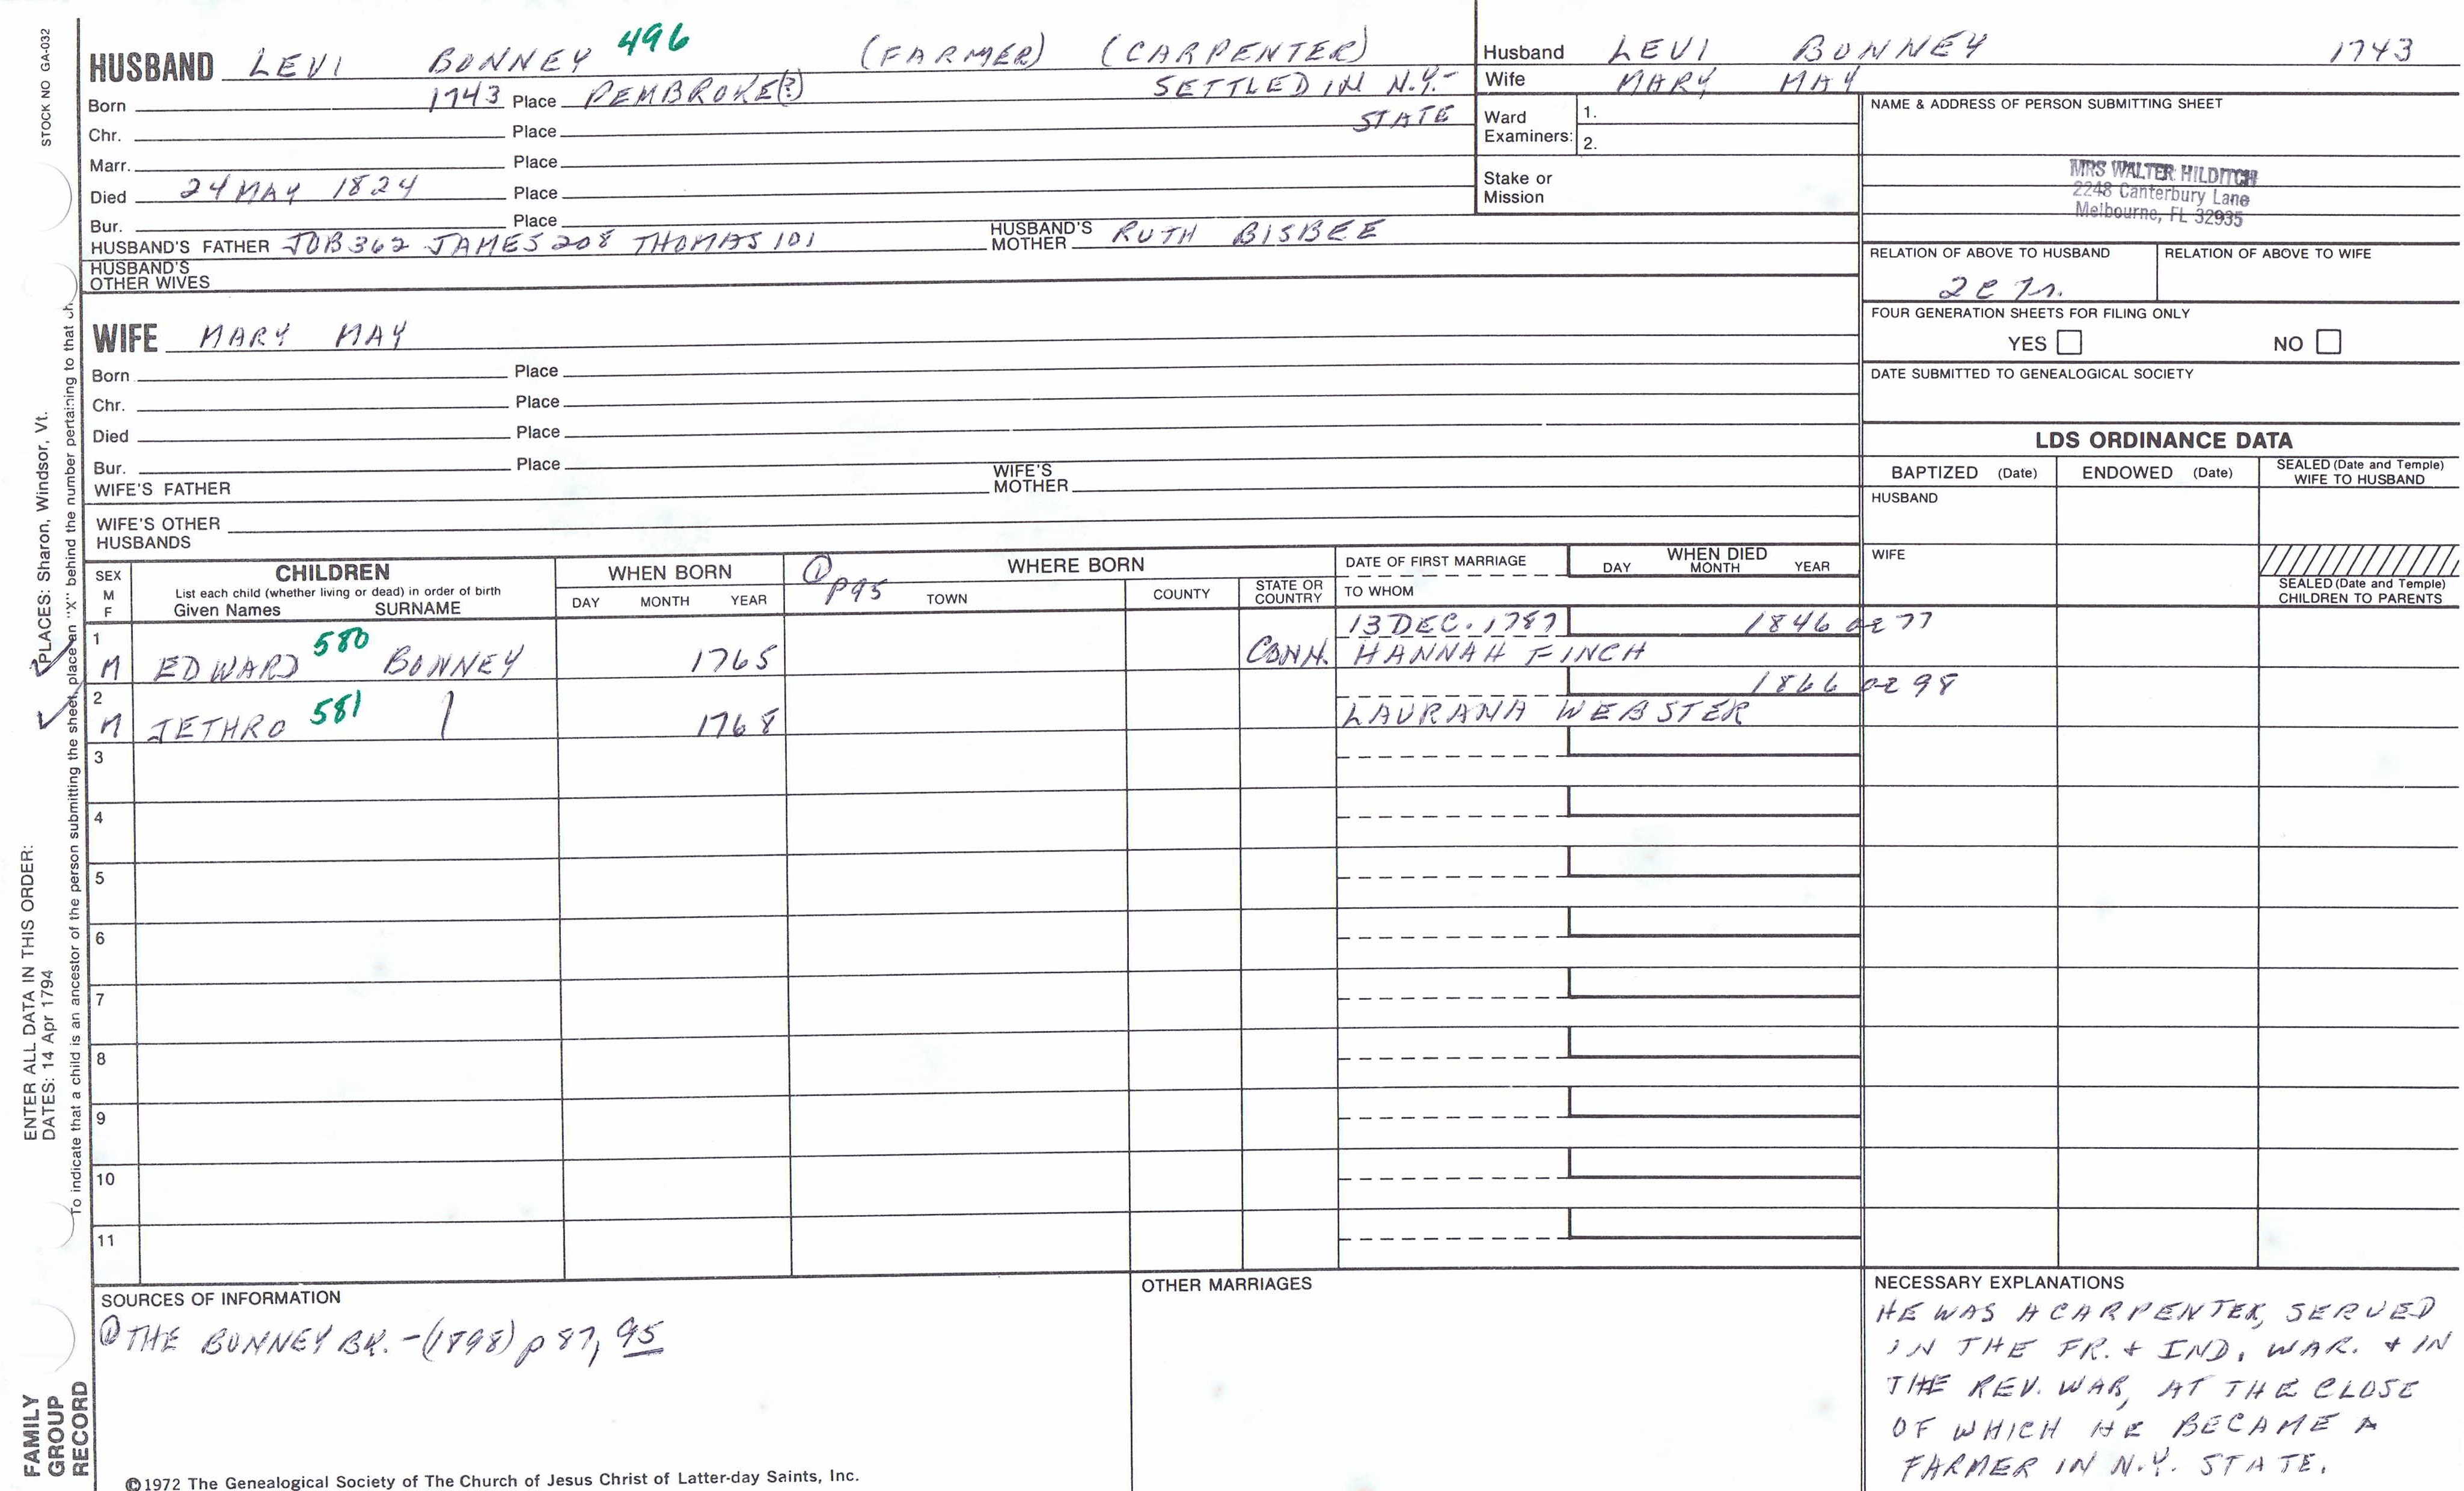 STOCK NO GA-032
HUSBAND LEVI BONNEY 496 (FARMER) (CARPENTER)
Born 1743 Place PEMBROKE(?) SETTLED IN N.Y.-
Chr. Place STATE
Marr. Place
Died 24 MAY 1824 Place
Bur. Place
HUSBAND'S FATHER JOB 362 JAMES 208 THOMAS 101 HUSBAND'S MOTHER RUTH BISBEE
HUSBAND'S OTHER WIVES
WIFE MARY MAY
Born Place
Chr. Place
Died Place
Bur. Place
WIFE'S FATHER WIFE'S MOTHER
WIFE'S OTHER HUSBANDS
Husband LEVI BONNEY 1743
Wife MARY MAY
Ward Examiners: 1.
2.
Stake or Mission
NAME & ADDRESS OF PERSON SUBMITTING SHEET
MRS WALTER HILDITCH
2248 Canterbury Lane
Melbourne, FL 32935
RELATION OF ABOVE TO HUSBAND RELATION OF ABOVE TO WIFE
FOUR GENERATION SHEETS FOR FILING ONLY
YES NO
DATE SUBMITTED TO GENEALOGICAL SOCIETY
LDS ORDINANCE DATA
BAPTIZED (Date) ENDOWED (Date) SEALED (Date and Temple) WIFE TO HUSBAND
HUSBAND
WIFE
SEALED (Date and Temple) CHILDREN TO PARENTS
SEX M F CHILDREN WHEN BORN ① P95 WHERE BORN DATE OF FIRST MARRIAGE WHEN DIED
List each child (whether living or dead) in order of birth
Given Names SURNAME DAY MONTH YEAR TOWN COUNTY STATE OR COUNTRY TO WHOM DAY MONTH YEAR
1 13 DEC. 1787 1846 ae 77
M EDWARD 580 BONNEY 1765 CONN. HANNAH FINCH
2 1866 ae 98
M JETHRO 581 1768 LAURANA WEBSTER
3
4
5
6
7
8
9
10
11
SOURCES OF INFORMATION
① THE BONNEY BK. - (1898) p 87, 95
OTHER MARRIAGES
NECESSARY EXPLANATIONS
HE WAS A CARPENTER, SERVED
IN THE FR. + IND. WAR. + IN
THE REV. WAR, AT THE CLOSE
OF WHICH HE BECAME A
FARMER IN N.Y. STATE.
©1972 The Genealogical Society of The Church of Jesus Christ of Latter-day Saints, Inc.
FAMILY GROUP RECORD
ENTER ALL DATA IN THIS ORDER:
DATES: 14 Apr 1794
PLACES: Sharon, Windsor, Vt.
To indicate that a child is an ancestor of the person submitting the sheet, place an "X" behind the number pertaining to that